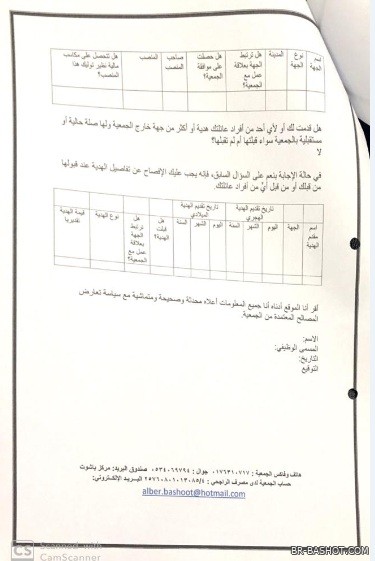 اسم الجهة
نوع الجهة
المدينة
هل ترتبط الجهة بعلاقة عمل مع الجمعية؟
هل حصلت على موافقة الجمعية؟
صاحب المنصب
المنصب
هل تتحصل على مكاسب مالية نظير توليك هذا المنصب؟
هل قدمت لك أو لأي أحد من أفراد عائلتك هدية أو أكثر من جهة خارج الجمعية ولها صلة حالية أو
مستقبلية بالجمعية سواء قبلتها أم لم تقبلها؟
لا
في حالة الإجابة بنعم على السؤال السابق، فإنه يجب عليك الإفصاح عن تفاصيل الهدية عند قبولها
من قبلك أو من قبل أيٍّ من أفراد عائلتك.
اسم مقدم الهدية
الجهة
تاريخ تقديم الهدية الهجري
اليوم
الشهر
السنة
تاريخ تقديم الهدية الميلادي
اليوم
الشهر
السنة
هل قبلت الهدية؟
هل ترتبط الجهة بعلاقة عمل مع الجمعية؟
نوع الهدية
قيمة الهدية تقديريا
أقر أنا الموقع أدناه أنا جميع المعلومات أعلاه محدثة وصحيحة ومتماشية مع سياسة تعارض
المصالح المعتمدة من الجمعية.
الاسم:
المسمى الوظيفي:
التاريخ:
التوقيع
هاتف وفاكس الجمعية : ٠١٧٦٣١٠٧١٧ جوال : ٠٥٣٤٠٦٩٧٩٤ صندوق البريد: مركز باشوت
حساب الجمعية لدى مصرف الراجحي : ٢٥٧٦٠٨٠١٠١٣٠٨٥/٤ البريد الإلكتروني:
alber.bashoot@hotmail.com
CS Scanned with
CamScanner
BR-BASHOT.COM